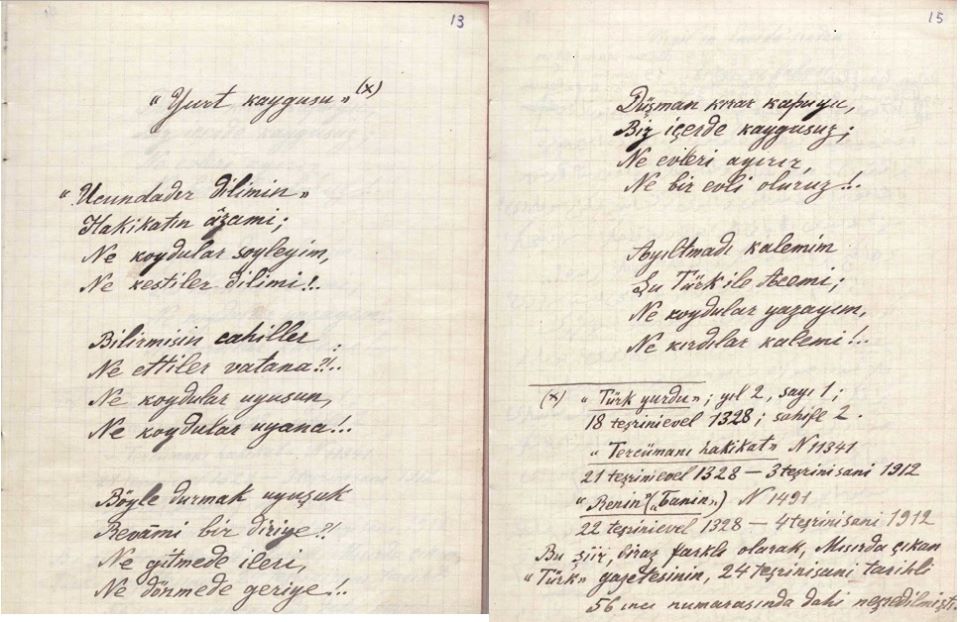 13
« Yurt kaygusu » (x)
« Ucundadır dilimin »
Hakikatın âzami;
Ne koydular soyleyim,
Ne kestiler dilimi!..
Bilirmisin cahiller
Ne ettiler vatana?!..
Ne koydular uyusun,
Ne koydular uyana!..
Böyle durmak uyuşuk
Revāmi bir diriye?!
Ne gitmede ileri,
Ne dönmede geriye!..
15
Düşman kırar kapuyu,
Biz içerde kaygusuz;
Ne evleri ayırır,
Ne bir evli oluruz!..
Ayıltmadı kalemin
Şu Türk ile Acemi;
Ne koydular yazayım,
Ne kırdılar kalemi!..
(x) « Türk yurdu »; yıl 2, sayı 1;
18 teşrinievel 1328; sahife 2.
« Tercümanı hakikat » N 11341
21 teşrinievel 1328 — 3 teşrinisani 1912
« Renin („Танин„) N 1491
22 teşrinievel 1328 — 4 teşrinisani 1912
Bu şiir, biraz farklı olarak, Mısırda çıkan
« Türk » gazetesinin, 24 teşrinisani tarihli
56 ıncı numarasında dahi neşredilmişt.